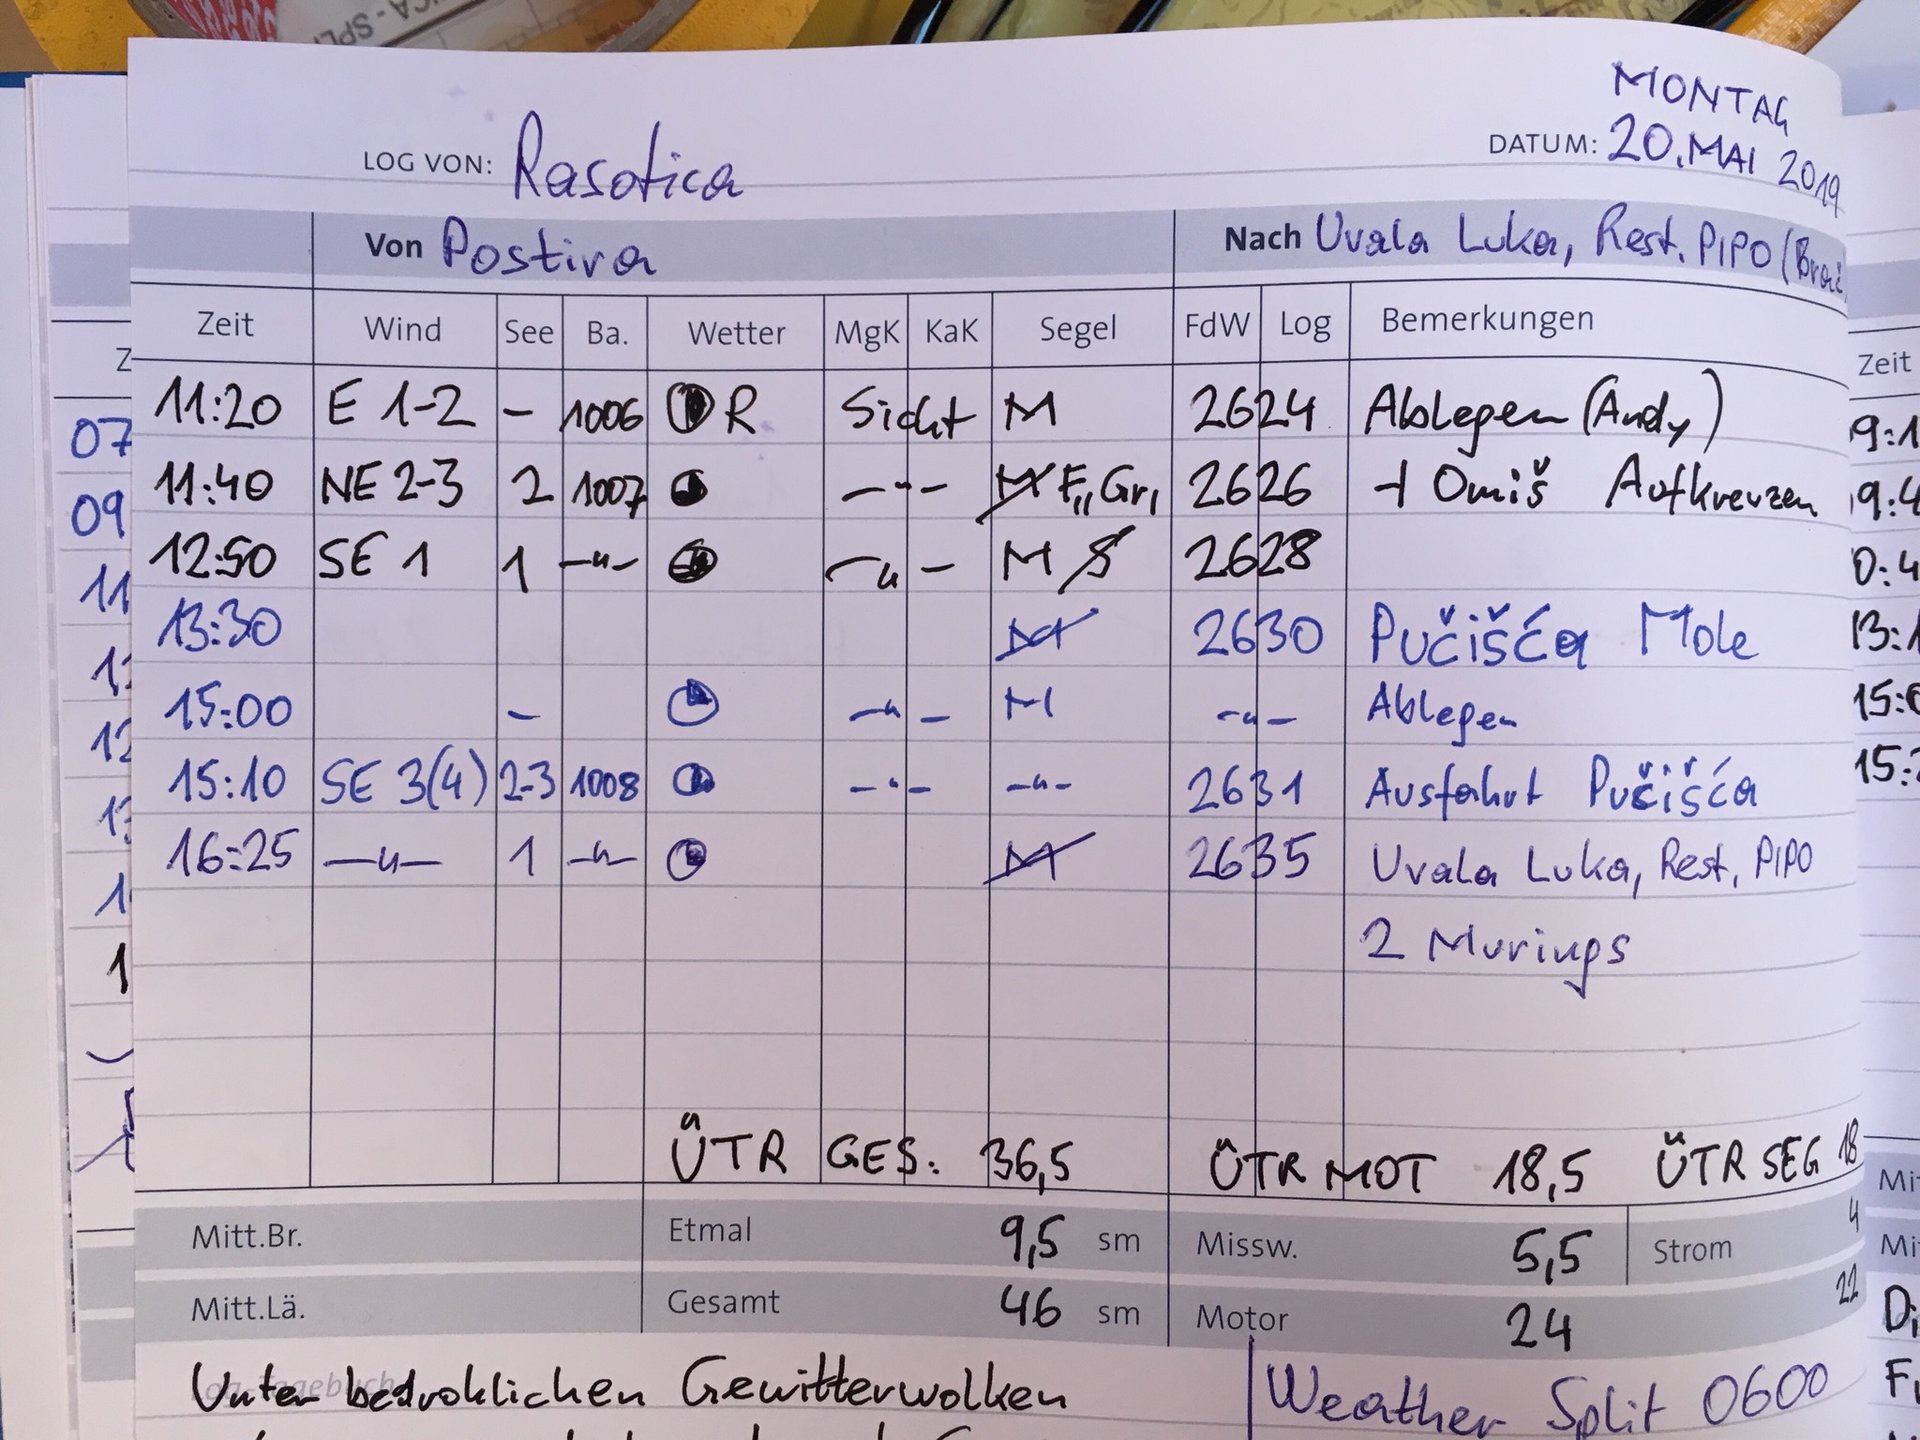 MONTAG
LOG VON: Rasotica DATUM: 20. MAI 2019
Von Postira Nach Uvala Luka, Rest. PIPO (Brač
Zeit Wind See Ba. Wetter MgK KaK Segel FdW Log Bemerkungen Zeit
11:20 E 1-2 - 1006 R Sicht M 2624 Ablegen (Andy)
11:40 NE 2-3 2 1007 -"- M F,, Gr, 2626 Omiš Aufkreuzen
12:50 SE 1 1 -"- -"- M S 2628
13:30 M 2630 Pučišća Mole
15:00 - -"- M -"- Ablegen
15:10 SE 3(4) 2-3 1008 -"- -"- 2631 Ausfahrt Pučišća
16:25 -"- 1 -"- M 2635 Uvala Luka, Rest. PIPO
2 Murings
ÜTR GES: 36,5 ÜTR MOT 18,5 ÜTR SEG 18
Mitt.Br. Etmal 9,5 sm Missw. 5,5 Strom 4
Mitt.Lä. Gesamt 46 sm Motor 24 22
Unter bedrohlichen Gewitterwolken Weather Split 0600